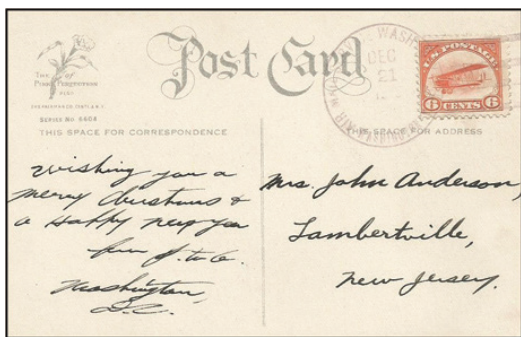 Post Card
The
of
SERIES No 6604
THIS SPACE FOR CORRESPONDENCE
THIS SPACE FOR ADDRESS
WASH
DEC
21
U.S. POSTAGE
6 CENTS 6
Wishing you a
merry Christmas &
a Happy new year
from
Washington,
D.C.
Mrs. John Anderson,
Lambertville,
New Jersey.